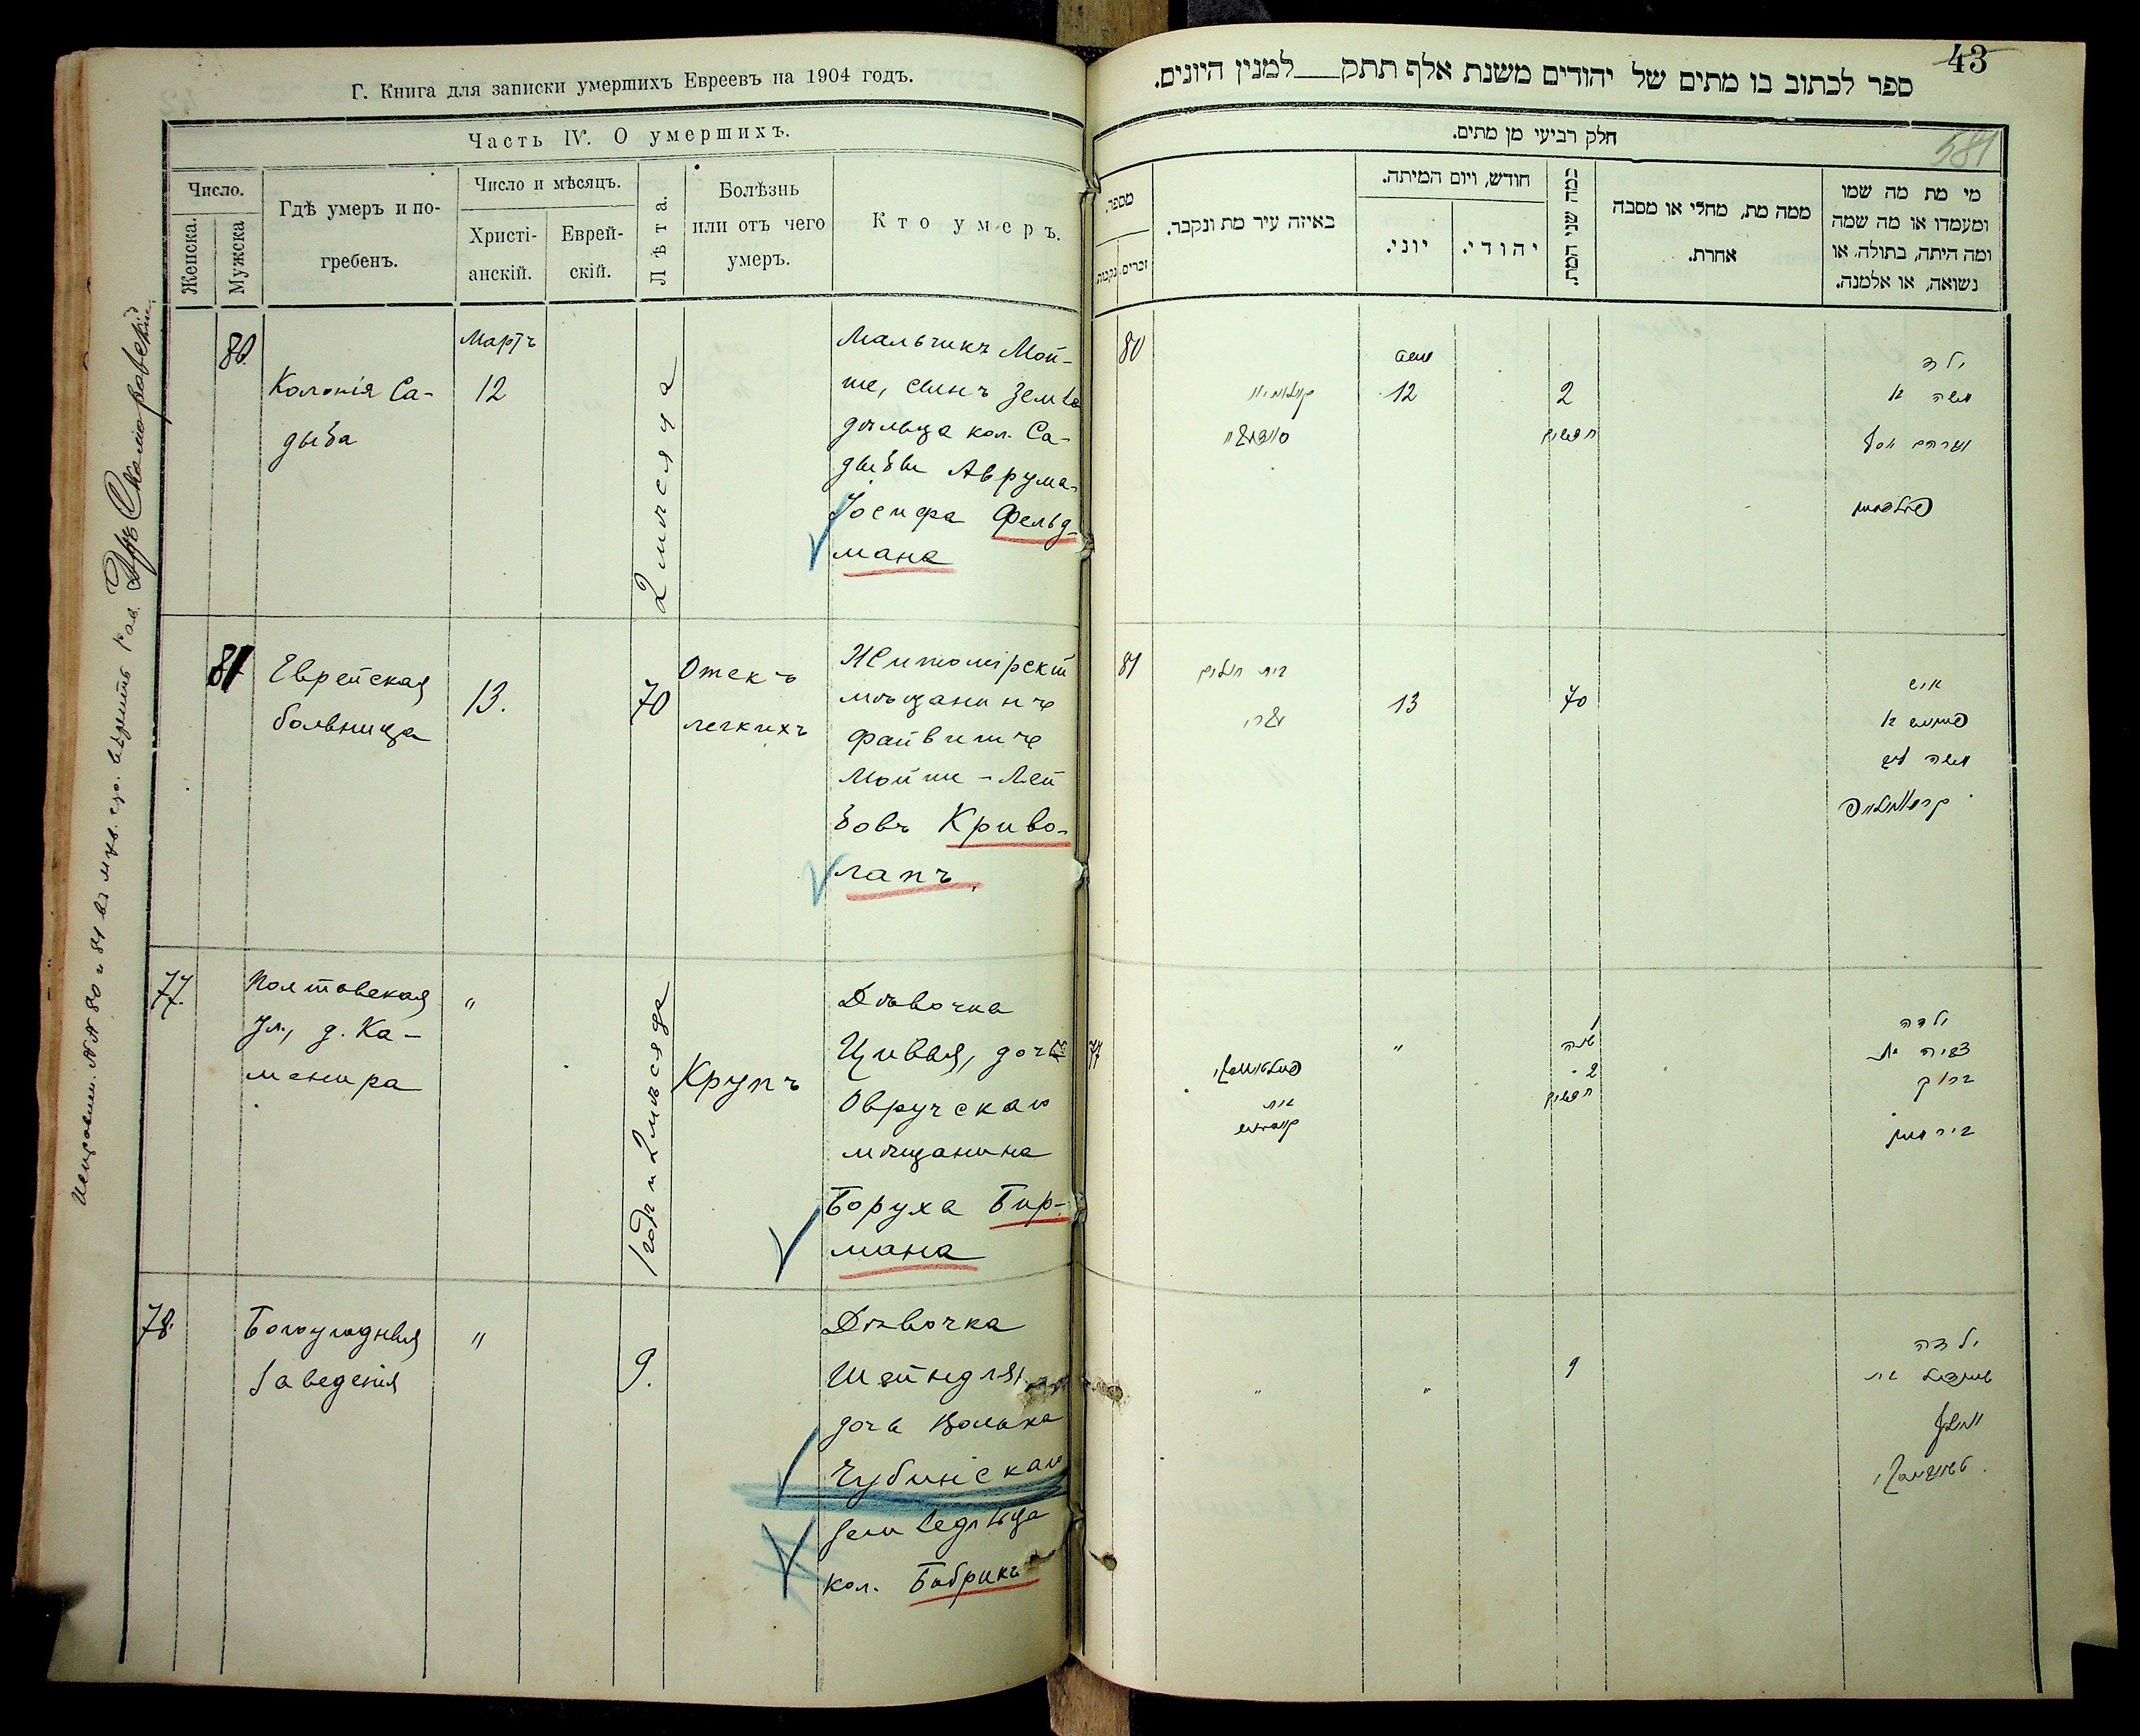 Г. Книга для записки умершихъ Евреевъ на 1904 годъ.
Часть IV. О умершихъ.
Число.
Женска.
Мужска
Гдѣ умеръ и по-
гребенъ.
Число и мѣсяцъ.
Христі-
анскій.
Еврей-
скій.
Лѣта.
Болѣзнь
или отъ чего
умеръ.
Кто умеръ.
80
Колонія Са-
дыба
Мартъ
12
2 мѣсяца
Мальчикъ Мой-
ше, сынъ земле
дѣльца кол. Са-
дыбы Аврума-
Іосифа Фельд-
мана
81
Еврейская
больница
13.
70
Отекъ
легкихъ
Житомірскій
мѣщанинъ
Файвишъ
Мойше-Лей
бовъ Криво-
лапъ.
77.
Полтавская
ул., д. Ка-
менира
"
1 годъ и 2 мѣсяца
Крупъ
Дѣвочка
Цивья, дочь
Овручскаго
мѣщанина
Боруха Бир-
мана
78.
Богоугодныя
Заведенія
"
9.
Дѣвочка
Шейндля
дочь Волька
Чубинскаго
земледѣльца
кол. Бобрикъ
43
581
ספר לכתוב בו מתים של יהודים משנת אלף תתק למנין היונים.
חלק רביעי מן מתים.
מספר.
זכרים.
נקבות.
באיזה עיר מת ונקבר.
חודש, ויום המיתה.
יוני.
יהודי.
כמה שני המת.
ממה מת, מחלי או מסבה
אחרת.
מי מת מה שמו
ומעמדו או מה שמה
ומה היתה, בתולה, או
נשואה, או אלמנה.
80
12
2
חדשים
ילד
משה ב
אברהם יוסף
פעלדמאן
81
בית חולים
13
70
איש
משה ליב
77
בית
"
1
שנה
2
חדשים
ילדה
צביה בת
ברוך
בירמאן
"
"
9
ילדה
שיינדל בת
וואלף